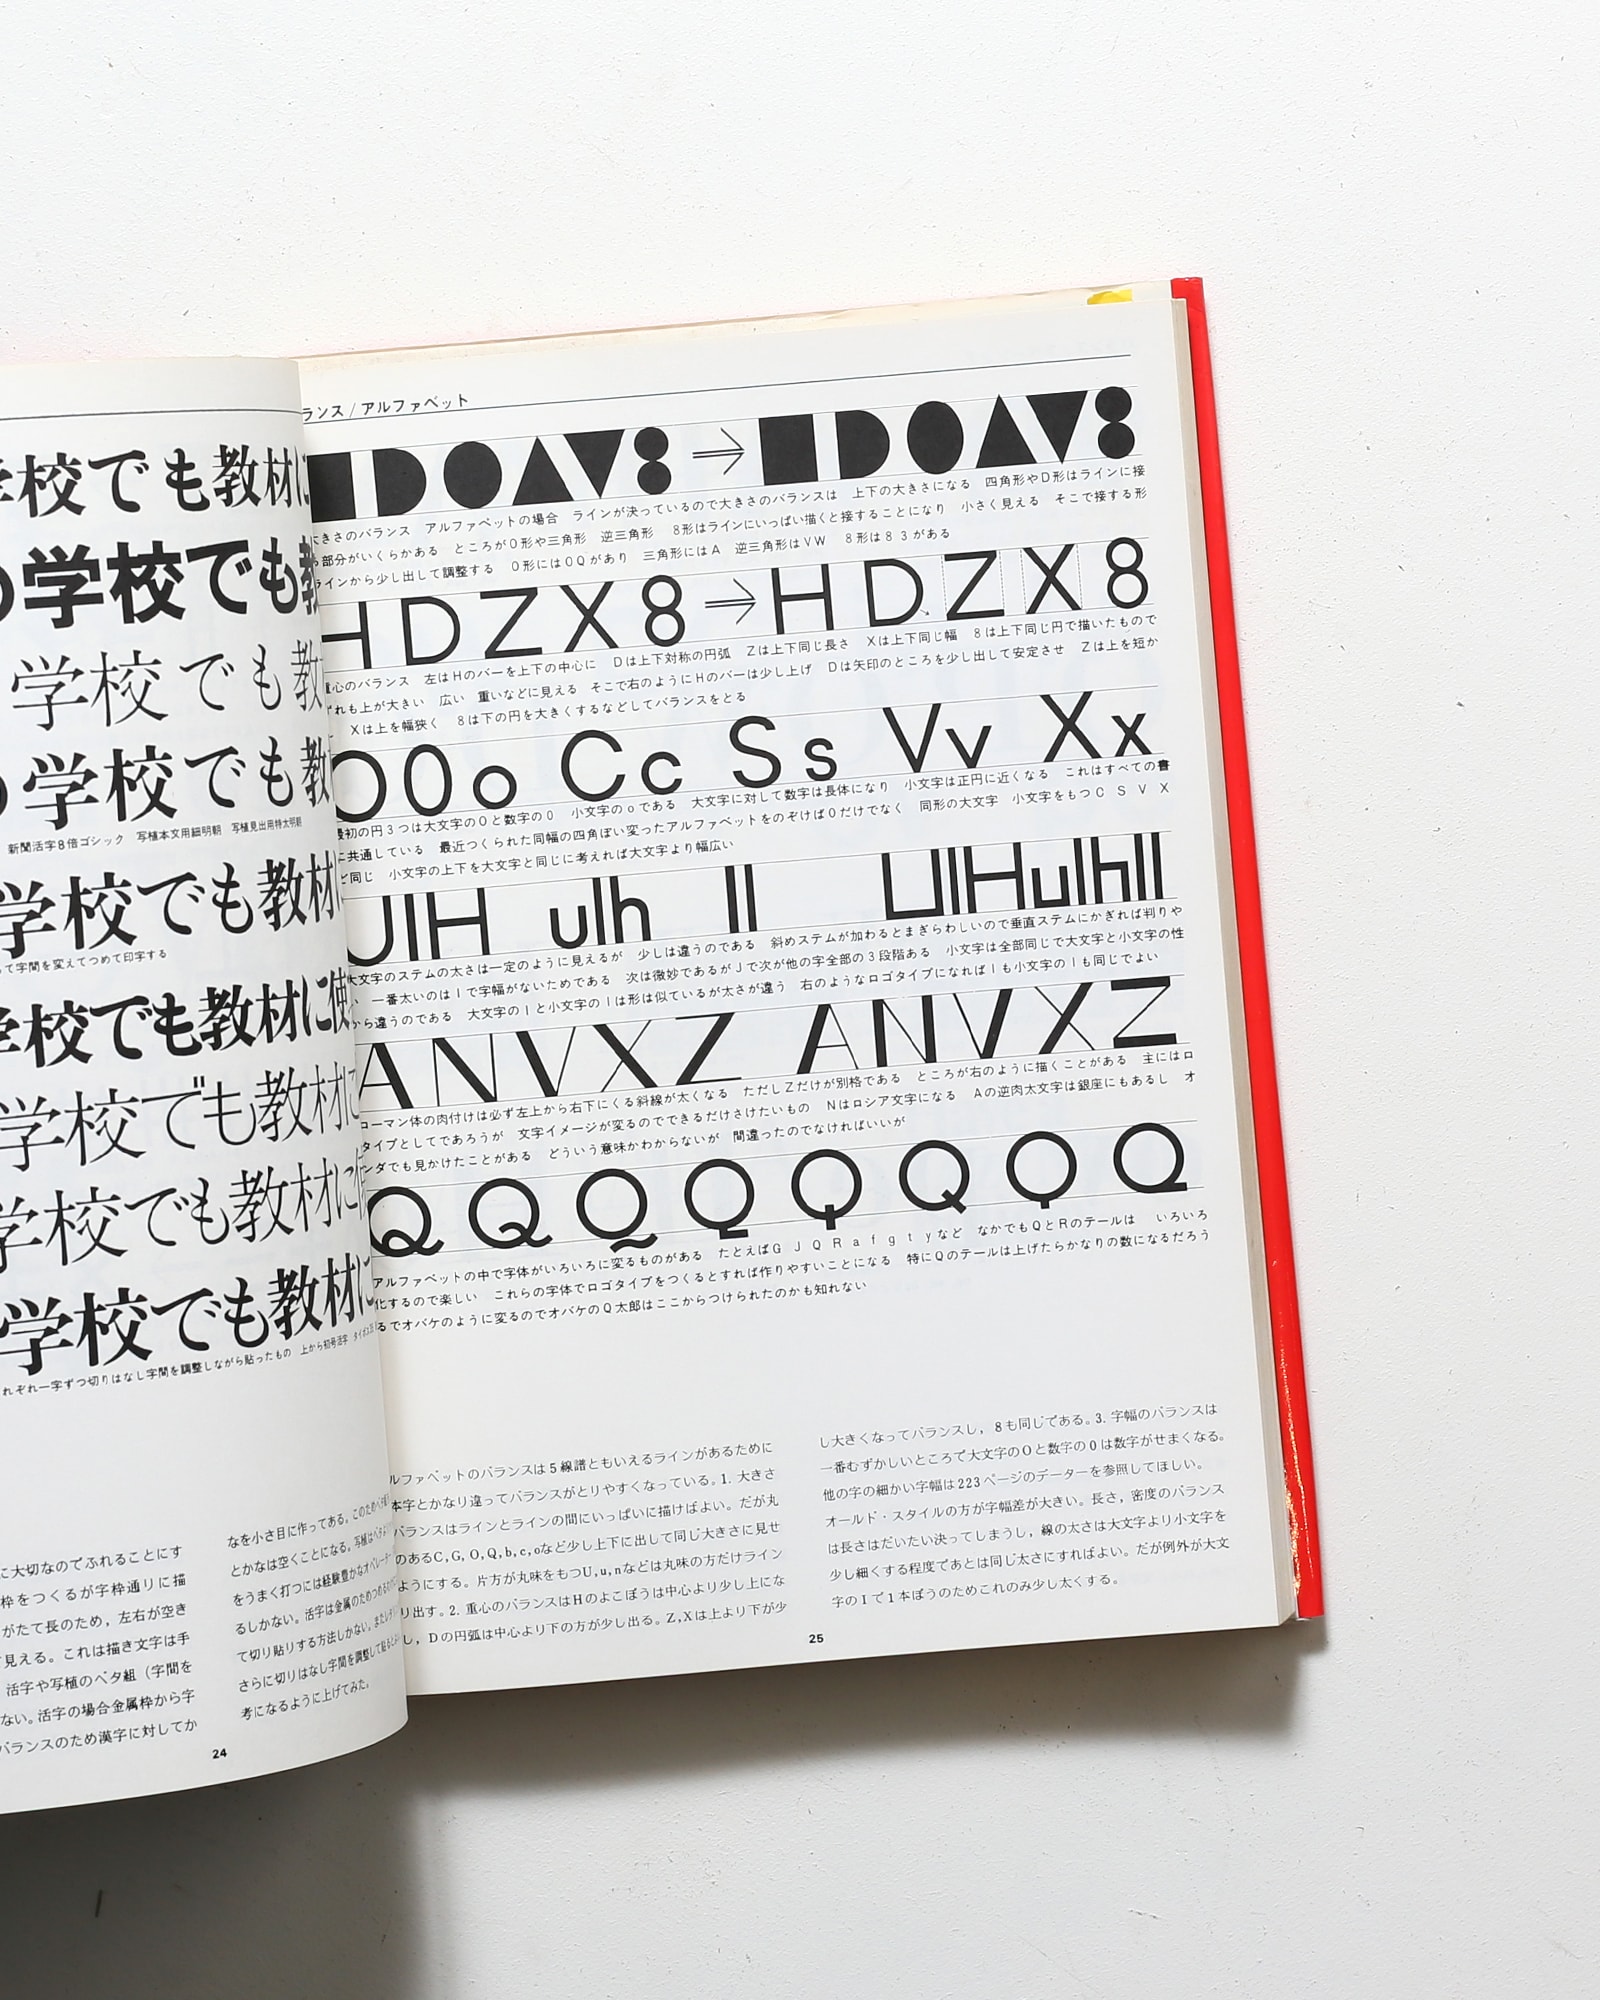 学校でも教材に
の学校でも教
学校でも教
の学校でも教
新聞活字8倍ゴシック　写植本文用細明朝　写植見出用特太明朝
学校でも教材
て字間を変えてつめて印字する
学校でも教材に使
学校でも教材に
学校でも教材に使
学校でも教材に
れぞれ一字ずつ切りはなし字間を調整しながら貼ったもの　上から初号活字
に大切なのでふれることにす
枠をつくるが字枠通りに描
がたて長のため，左右が空き
見える。これは描き文字は手
活字や写植のベタ組（字間を
ない。活字の場合金属枠から字
バランスのため漢字に対してか
なを小さ目に作ってある。このため
とかなは空くことになる。写植は
をうまく打つには経験豊かなオペレー
るしかない。活字は金属のためつめる
て切り貼りする方法しかない。
さらに切りはなし字間を調整して貼る
考になるように上げてみた。
24
ランス/アルファベット
DOAV8⇒■DOAV8
大きさのバランス　アルファベットの場合　ラインが決っているので大きさのバランスは　上下の大きさになる　四角形やD形はラインに接
る部分がいくらかある　ところがO形や三角形　逆三角形　8形はラインにいっぱい描くと接することになり　小さく見える　そこで接する形
ラインから少し出して調整する　O形にはOQがあり　三角形にはA　逆三角形はVW　8形は83がある
HDZX8⇒HDZX8
重心のバランス　左はHのバーを上下の中心に　Dは上下対称の円弧　Zは上下同じ長さ　Xは上下同じ幅　8は上下同じ円で描いたもので
ずれも上が大きい　広い　重いなどに見える　そこで右のようにHのバーは少し上げ　Dは矢印のところを少し出して安定させ　Zは上を短か
Xは上を幅狭く　8は下の円を大きくするなどしてバランスをとる
O0o Cc Ss Vv Xx
最初の円3つは大文字のOと数字の0　小文字のoである　大文字に対して数字は長体になり　小文字は正円に近くなる　これはすべての書
に共通している　最近つくられた同幅の四角ぽい変ったアルファベットをのぞけばOだけでなく　同形の大文字　小文字をもつC S V X
ど同じ　小文字の上下を大文字と同じに考えれば大文字より幅広い
UIH ulh Il UIHulhIl
大文字のステムの太さは一定のように見えるが　少しは違うのである　斜めステムが加わるとまぎらわしいので垂直ステムにかぎれば判りや
い　一番太いのはIで字幅がないためである　次は微妙であるがJで次が他の字全部の3段階ある　小文字は全部同じで大文字と小文字の性
から違うのである　大文字のIと小文字のlは形は似ているが太さが違う　右のようなロゴタイプになればIも小文字のlも同じでよい
ANVXZ ANVXZ
ローマン体の肉付けは必ず左上から右下にくる斜線が太くなる　ただしZだけが別格である　ところが右のように描くことがある　主にはロ
タイプとしてであろうが　文字イメージが変るのでできるだけさけたいもの　Nはロシア文字になる　Aの逆肉太文字は銀座にもあるし　オ
ンダでも見かけたことがある　どういう意味かわからないが　間違ったのでなければいいが
QQQQQQQQ
アルファベットの中で字体がいろいろに変るものがある　たとえばG J Q R a f g t yなど　なかでもQとRのテールは　いろいろ
化するので楽しい　これらの字体でロゴタイプをつくるとすれば作りやすいことになる　特にQのテールは上げたらかなりの数になるだろう
るでオバケのように変るのでオバケのQ太郎はここからつけられたのかも知れない
ルファベットのバランスは5線譜ともいえるラインがあるために
本字とかなり違ってバランスがとりやすくなっている。1. 大きさ
バランスはラインとラインの間にいっぱいに描けばよい。だが丸
のあるC, G, O, Q, b, c, oなど少し上下に出して同じ大きさに見せ
ようにする。片方が丸味をもつU, u, nなどは丸味の方だけライン
り出す。2. 重心のバランスはHのよこぼうは中心より少し上にな
し，Dの円弧は中心より下の方が少し出る。Z, Xは上より下が少
し大きくなってバランスし，8も同じである。3. 字幅のバランスは
一番むずかしいところで大文字のOと数字の0は数字がせまくなる。
他の字の細かい字幅は223ページのデーターを参照してほしい。
オールド・スタイルの方が字幅差が大きい。長さ，密度のバランス
は長さはだいたい決ってしまうし，線の太さは大文字より小文字を
少し細くする程度であとは同じ太さにすればよい。だが例外が大文
字のIで1本ぼうのためこれのみ少し太くする。
25